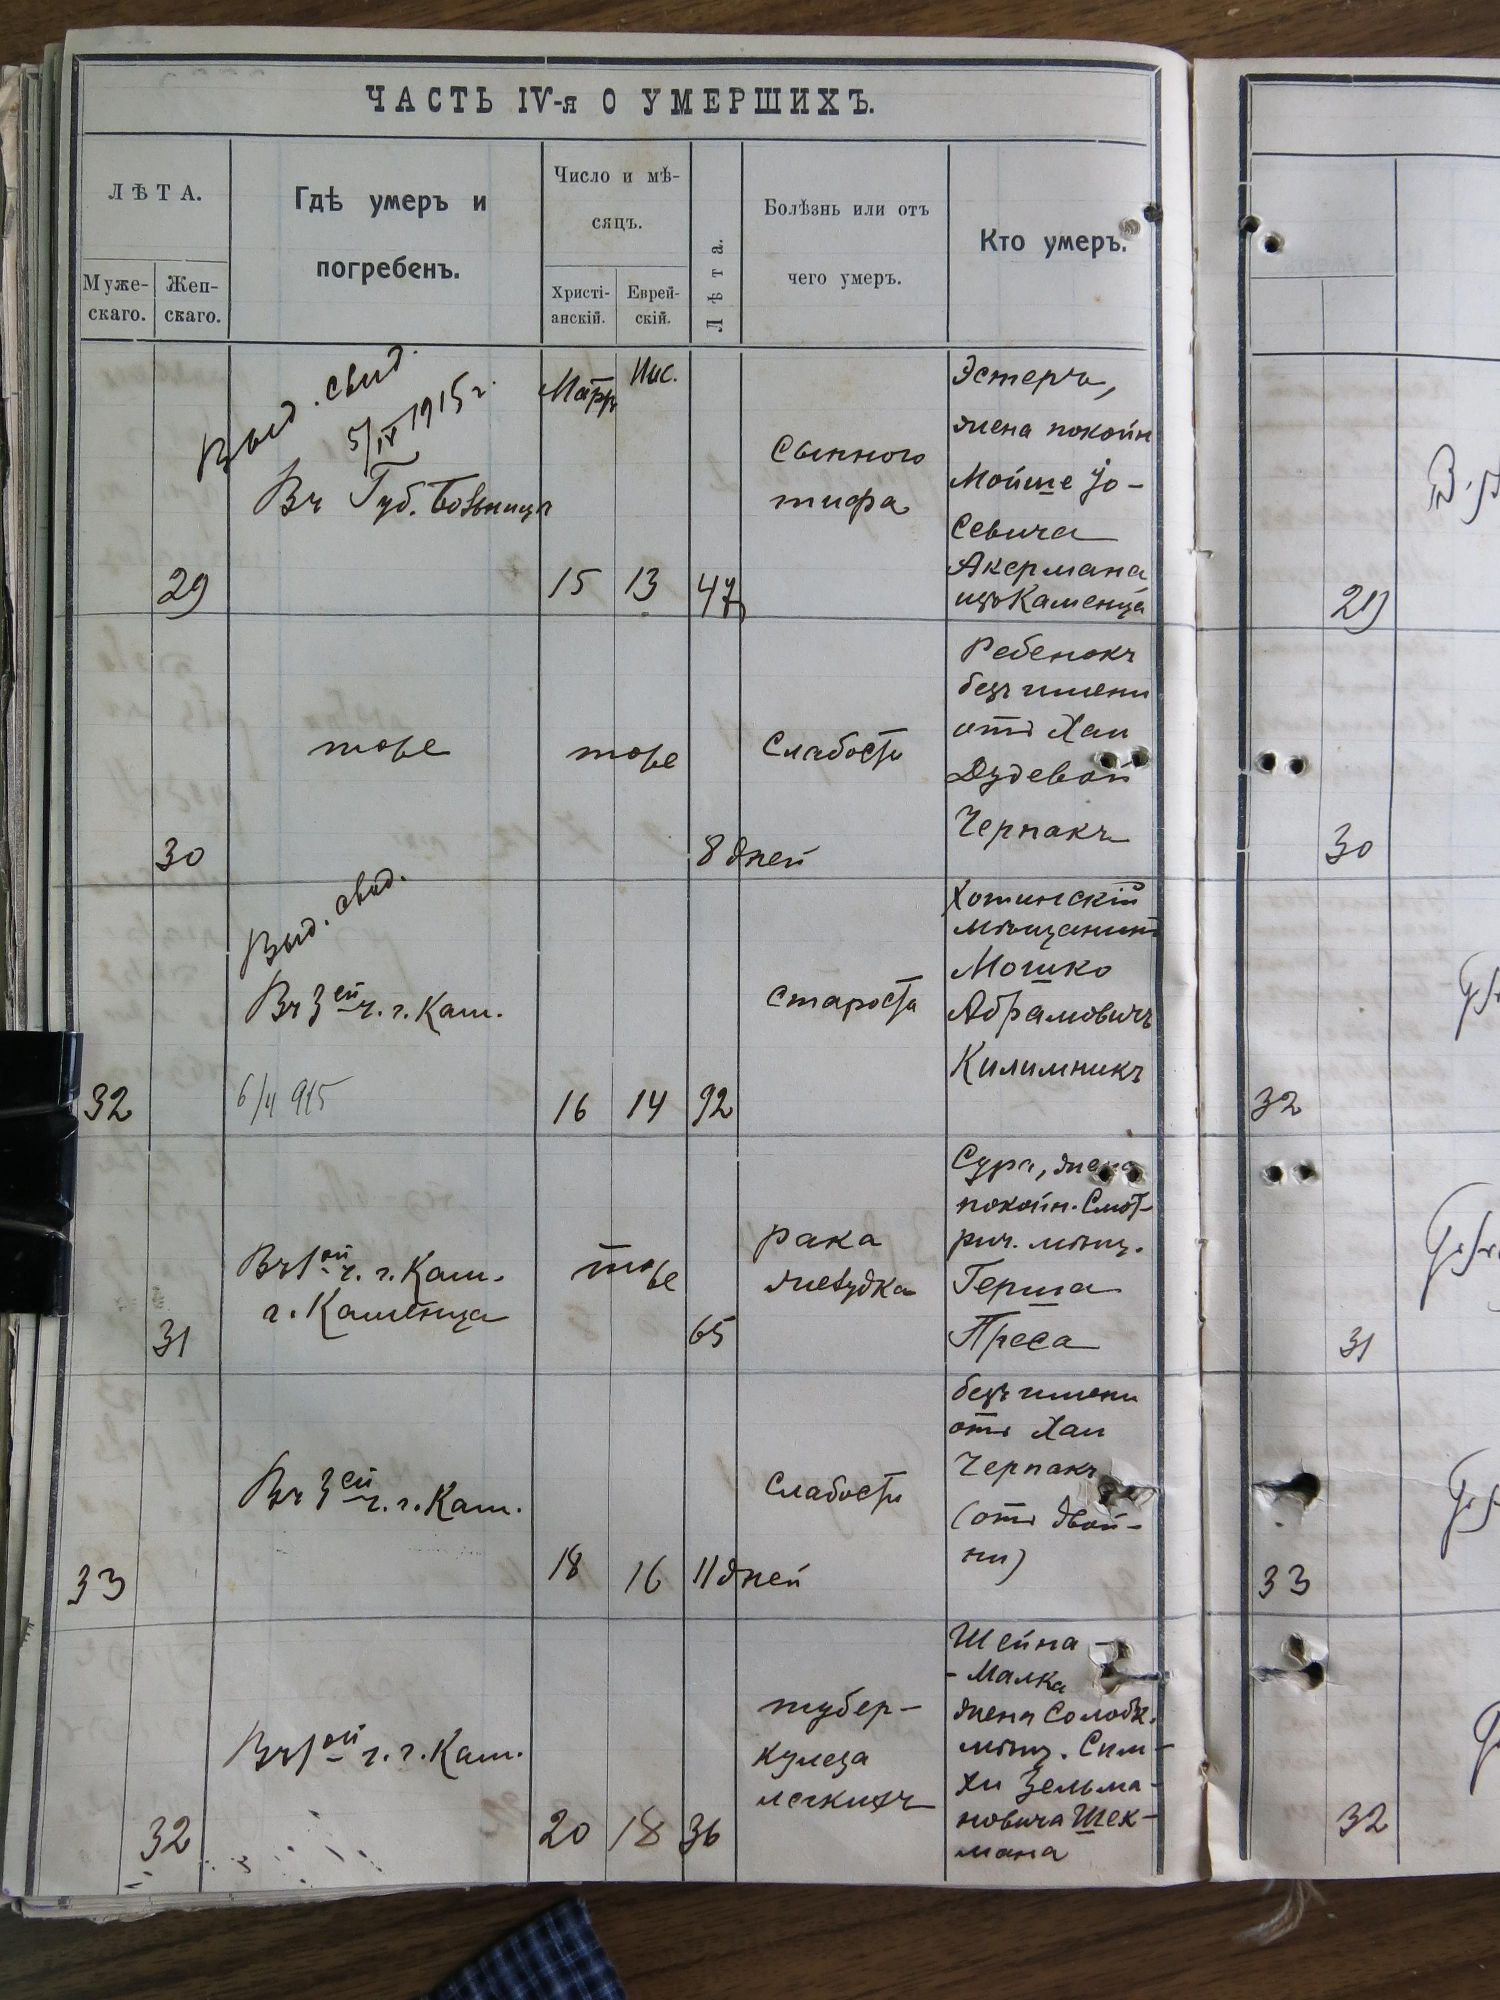 ЧАСТЬ IV-я О УМЕРШИХЪ.
ЛѢТА.
Муже-
скаго.
Жен-
скаго.
Гдѣ умеръ и
погребенъ.
Число и мѣ-
сяцъ.
Христі-
анскій.
Еврей-
скій.
Лѣта.
Болѣзнь или отъ
чего умеръ.
Кто умеръ.
29
Выд. свид.
5/IV 1915 г.
Въ Губ. Больницѣ
Мартъ
Нис.
15
13
47
Сыпного
тифа
Эстеръ,
жена покойн
Мойше Іо-
севича
Акермана
изъ Каменца
29
30
тоже
тоже
8 дней
Слабости
Ребенокъ
безъ имени
отъ Хаи
Дудевой
Черпакъ
30
32
Выд. свид.
Въ 3ей ч. г. Кам.
6/4 915
16
14
92
старости
Хотинскій
мѣщанинъ
Мошко
Абрамовичъ
Килимникъ
32
31
Въ 1ой ч. г. Кам.
г. Каменца
тоже
65
рака
желудка
Сура, жена
покойн. Смот-
рич. мѣщ.
Герша
Преса
31
33
Въ 3ей ч. г. Кам.
18
16
11 дней
Слабости
безъ имени
отъ Хаи
Черпакъ
(отъ двой-
ни)
33
32
Въ 1ой ч. г. Кам.
20
18
36
тубер-
кулеза
легкихъ
Шейна-
-Малка
жена Солобк.
мѣщ. Сим-
хи Зельма-
новича Шек-
мана
32